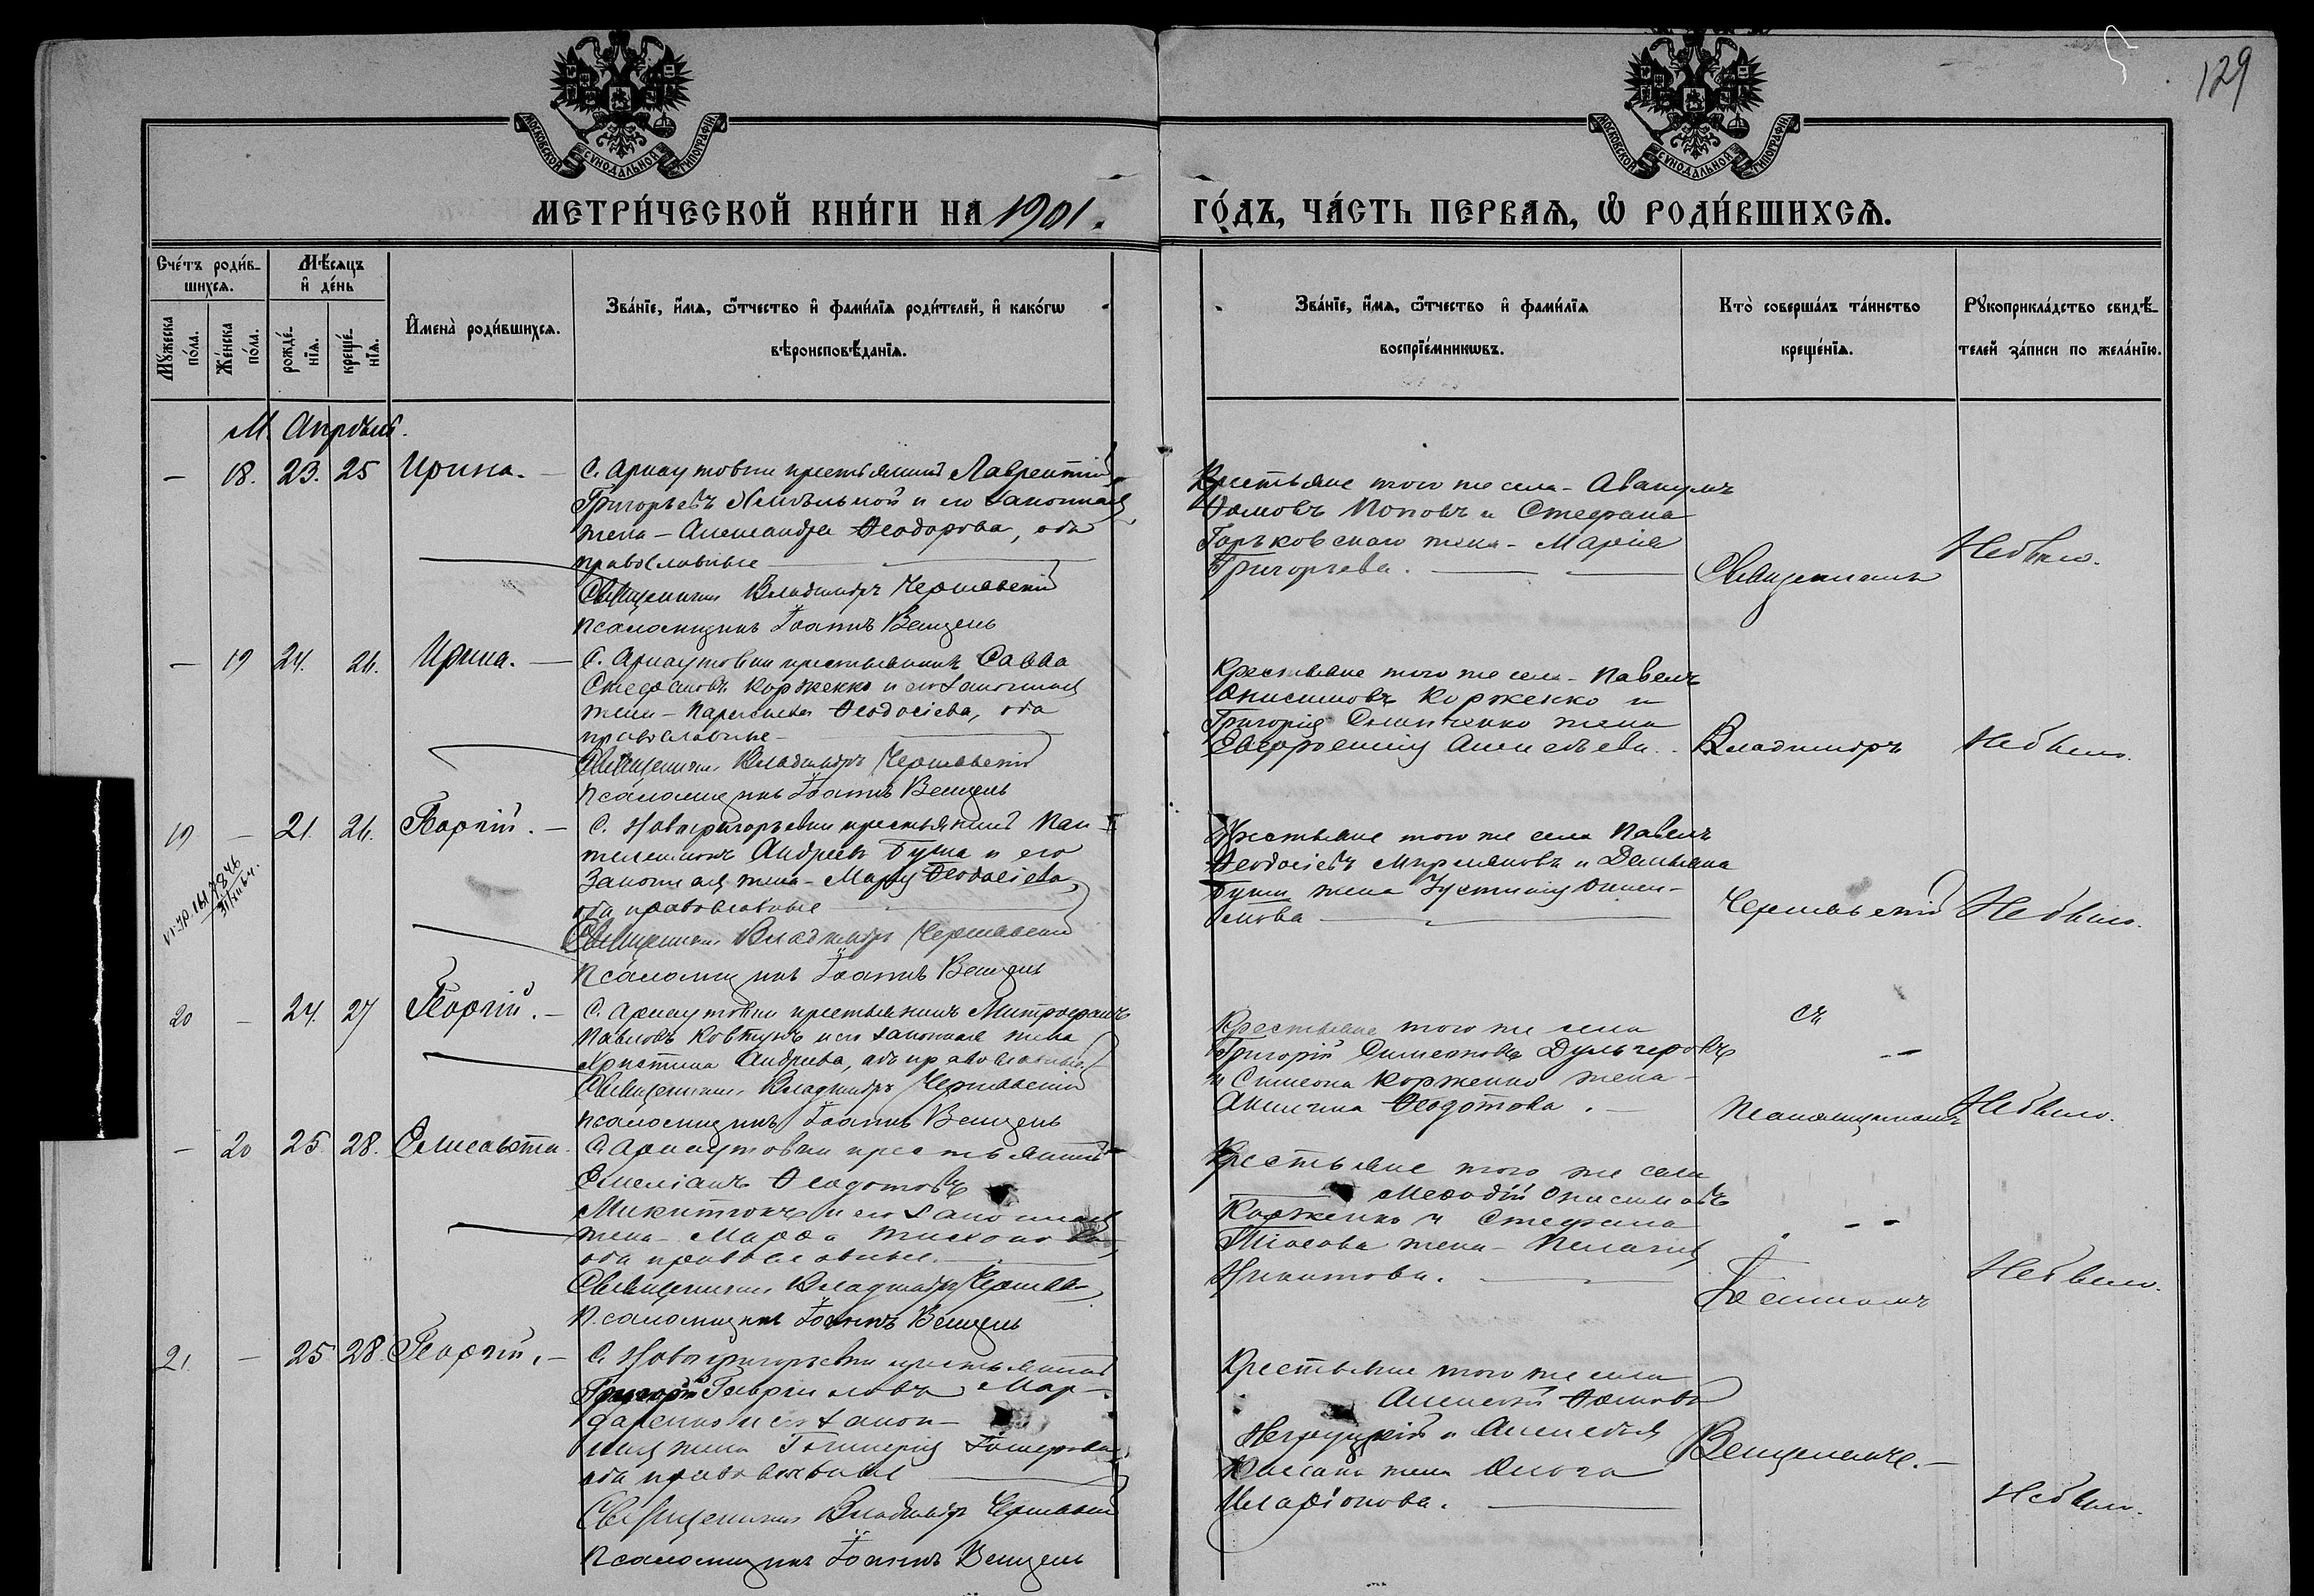 129
МОСКОВСКОЙ СѴНОДАЛЬНОЙ ТИПОГРАФІИ
МОСКОВСКОЙ СѴНОДАЛЬНОЙ ТИПОГРАФІИ
МЕТРИ́ЧЕСКОЙ КНИ́ГИ НА 1901.
ГО́ДЪ, ЧА́СТЬ ПЕРВАѦ, Ѽ РОДИ́ВШИХСѦ.
Сче́тъ роди́в-
шихсѧ.
Мꙋ́жеска
по́ла.
Же́нска
по́ла.
Мѣ́сѧцъ
и҆ де́нь
рожде́-
нїѧ.
креще́-
нїѧ.
И҆мена̀ роди́вшихсѧ.
Зва́нїе, и҆́мѧ, ѻ҆́тчество и҆ фами́лїѧ роди́телей, и҆ како́гѡ
вѣроисповѣ́данїѧ.
Зва́нїе, и҆́мѧ, ѻ҆́тчество и҆ фами́лїѧ
воспрїе́мникѡвъ.
Кто̀ соверша́лъ та́инство
креще́нїѧ.
Рꙋкоприкла́дство свидѣ́-
телей за́писи по жела́нїю.
М. Апрѣль.
— 18. 23. 25 Ирина. — С. Арнаутовки крестьянинъ Лаврентій
Григорьевъ и его законная
жена – Александра Ѳеодорова, оба
православные
Священникъ Владиміръ Чернявскій
Псаломщикъ Іоаннъ Венцель
Крестьяне того же села – Авакумъ
Ѳомовъ Поповъ и Стефана
Горьковскаго жена – Марія
Григорьева.
Священникъ
Не было.
— 19 24. 26. Ирина. — С. Арнаутовки крестьянинъ Савва
Стефановъ Корженко и его законная
жена – Параскева Ѳеодосіева, оба
православные –
Священникъ Владиміръ Чернявскій
Псаломщикъ Іоаннъ Венцель
Крестьяне того же села – Павелъ
Онисимовъ Корженко и
Григорія жена
Евфросинія Алексѣева.
Владиміръ
Не было.
19 — 21. 26. Георгій. — С. Новогригорьевки крестьянинъ Пан-
телеимонъ Андреевъ Буша и его
законная жена – Марѳа Ѳеодосіева,
оба православные
Священникъ Владиміръ Чернявскій
Псаломщикъ Іоаннъ Венцель
Крестьяне того же села Павелъ
Ѳеодосіевъ и Демьяна
Буши жена Іустинія Ониси-
мова
Чернявскій
Не было.
20 — 24. 27 Георгій. — С. Арнаутовки крестьянинъ Митрофанъ
Павловъ Ковтунъ и его законная жена
Христина Андреева, оба православные.
Священникъ Владиміръ Чернявскій
Псаломщикъ Іоаннъ Венцель
Крестьяне того же села
Григорій Симеоновъ Дульчеровъ
и Симеона Корженко жена –
Акилина Ѳеодотова.
съ
Псаломщикомъ
Не было.
— 20 25. 28. Елисавета. С. Арнаутовки крестьянинъ
Емеліанъ Ѳеодотовъ
Микитюкъ и его законная
жена – Марѳа Тихонова
оба православные.
Священникъ Владиміръ Чернявскій
Псаломщикъ Іоаннъ Венцель
Крестьяне того же села
Меѳодій Онисимовъ
Корженко и Стефана
жена – Пелагія
Никитова.
Іоанномъ
Не было.
21 — 25 28. Георгій. — С. Новогригорьевки крестьянинъ
Григорій Гавриловъ Мар-
даренко и его закон-
ная жена Гликерія
оба православные
Священникъ Владиміръ Чернявскій
Псаломщикъ Іоаннъ Венцель
Крестьяне того же села
Алексѣй Ѳомовъ
и Алексѣя
жена Ольга
Иларіонова.
Венцелемъ. —
Не было.